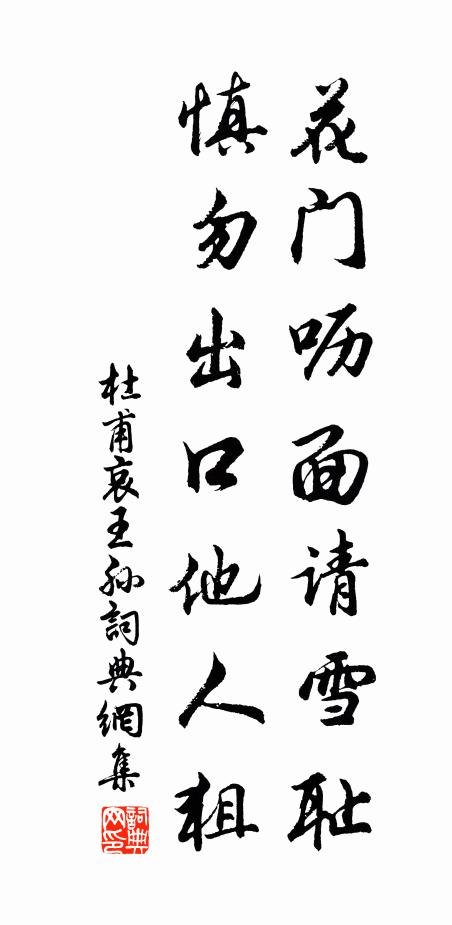 花门呖面请雪耻
慎勿出口他人狙
杜甫哀王孙詞典網集
詞典网印